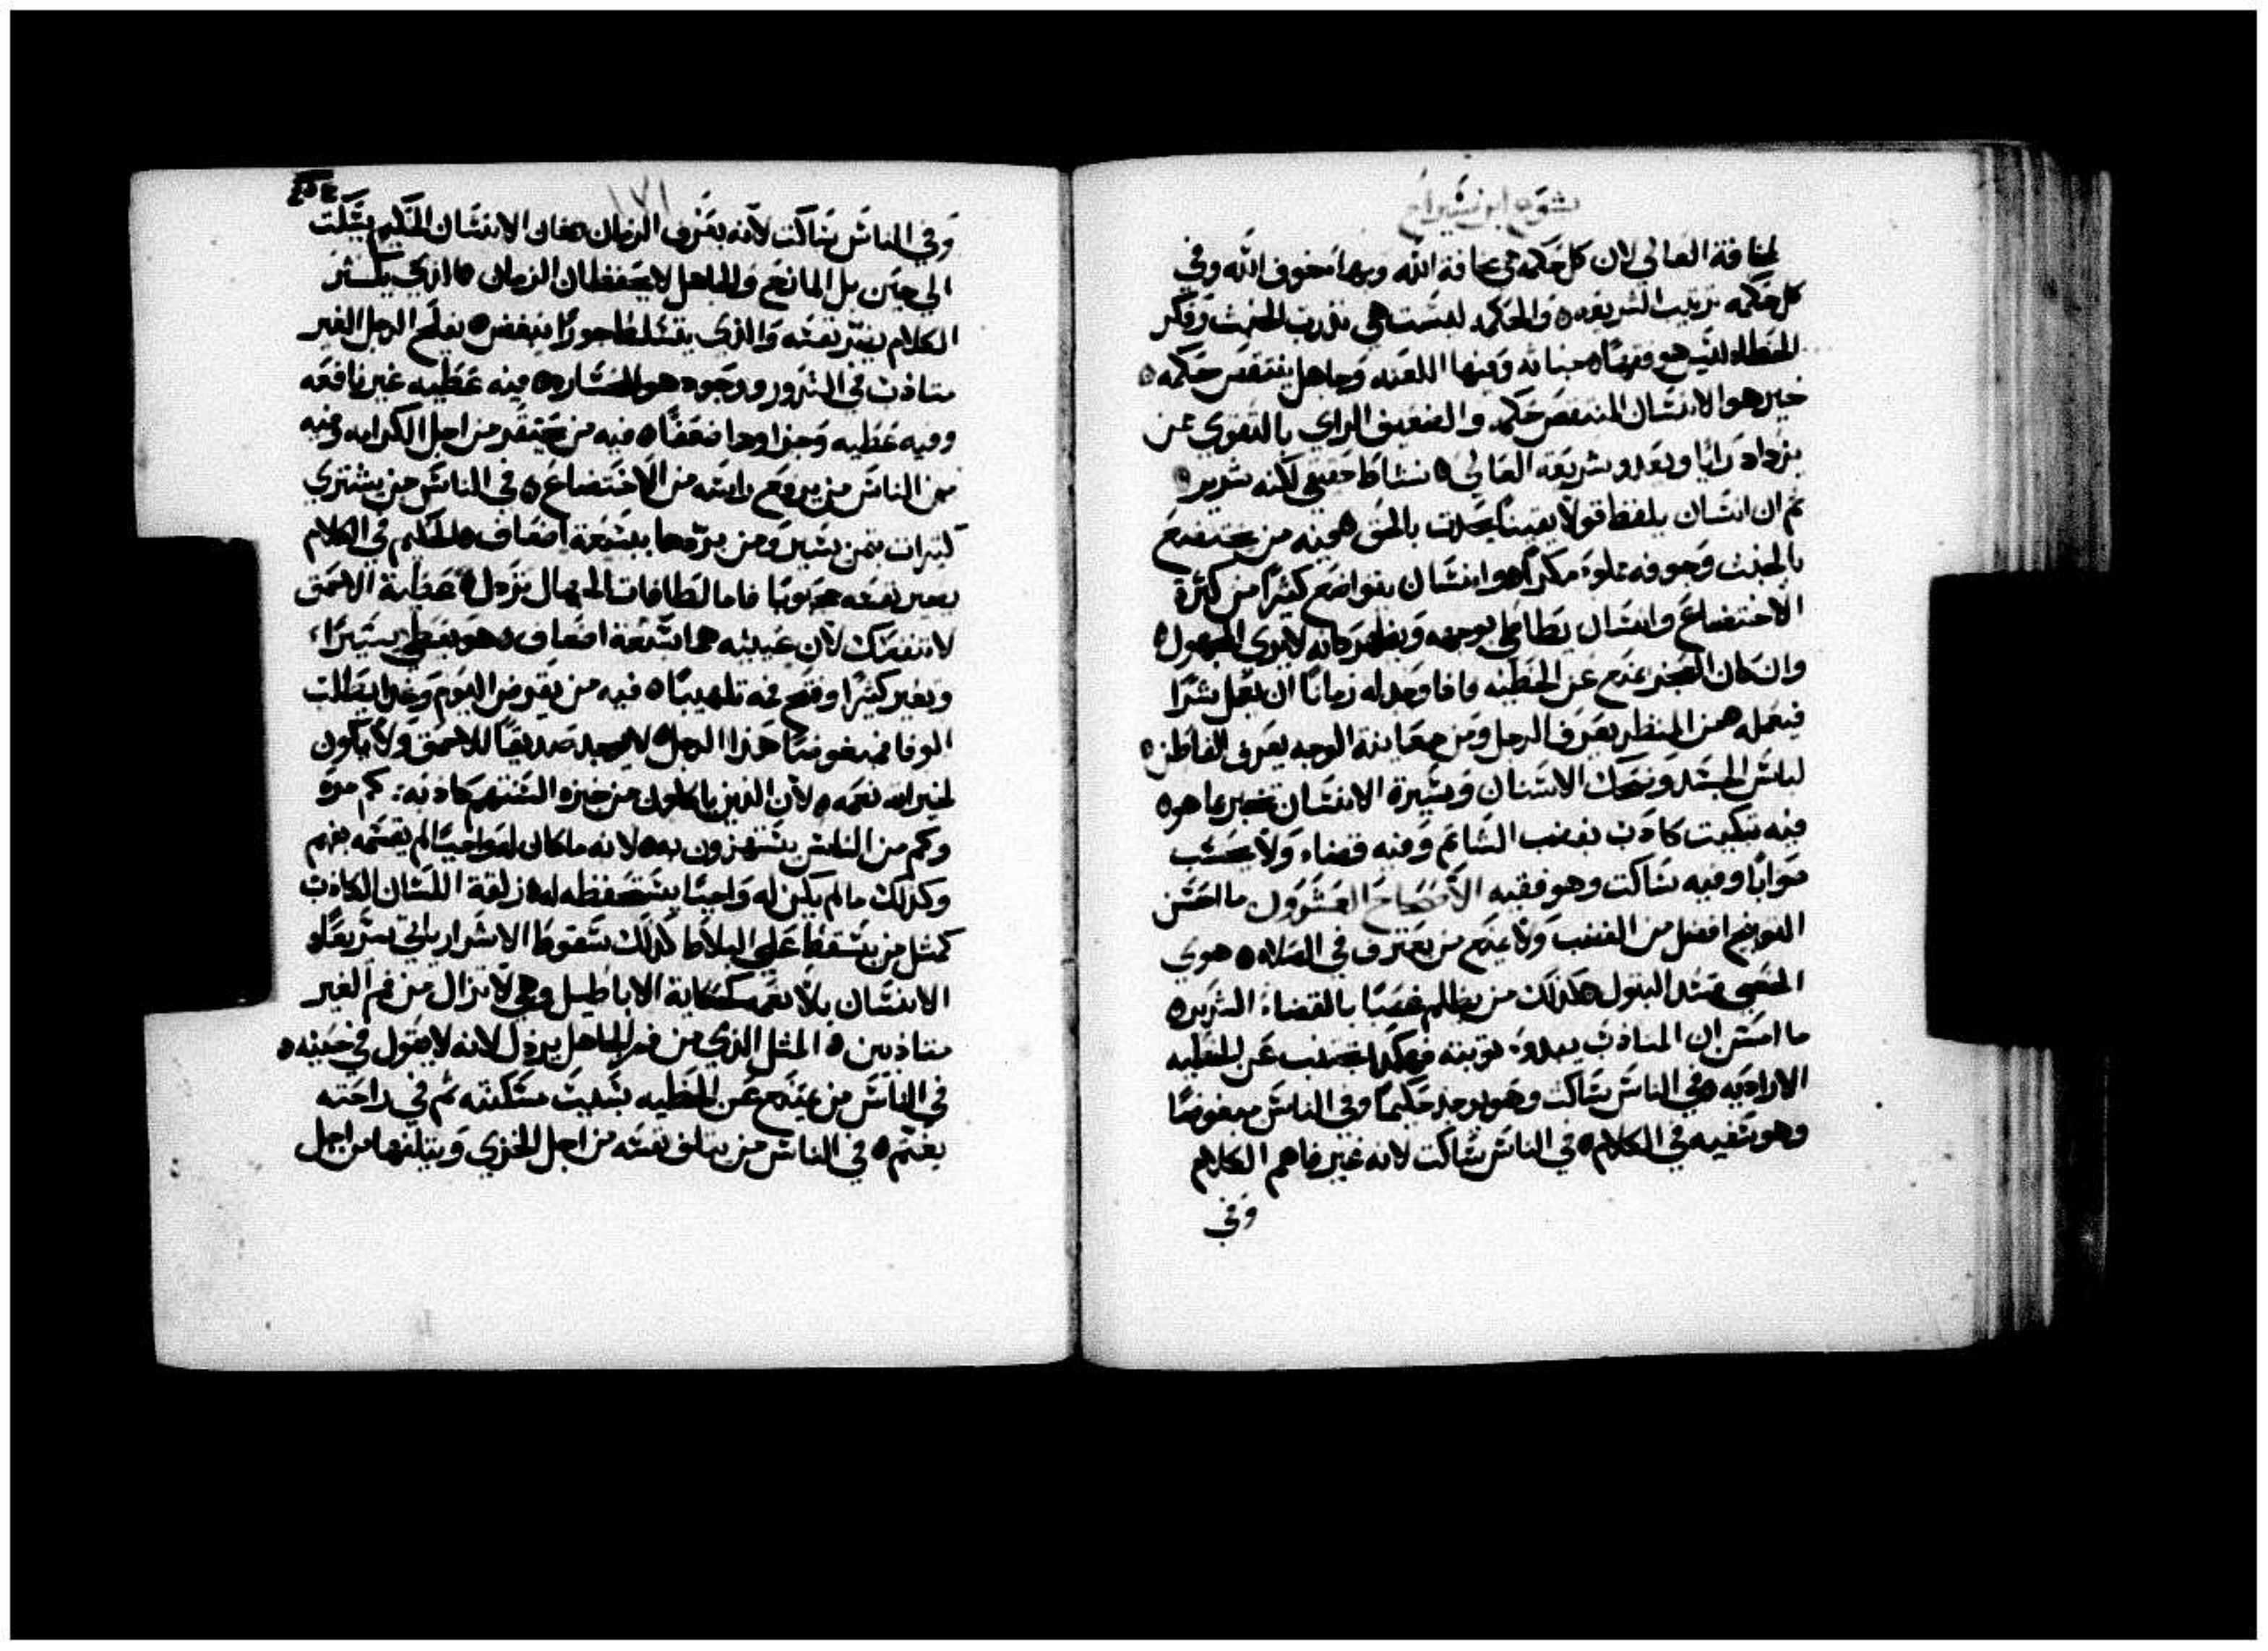 يشوع ابن شيراخ
لمخافة العالي لان كل حكمه هي مخافة الله وبها مخوف الله وفي
كل حكمه ترتيب الشريعه ه والحكمه ليست هي تدريب الخبث وفكر
الخطاه ليس هو فهمًا ه خباثه وفيها اللعنه وجاهل ينتقص حكمه ه
خير هو الانسان المنتقص حكمه والضعيف الراي بالتقوي من
يزداد رايًا ويعدو شريعة العالي ه نشاط حقيقي لكنه شرير ه
ثم ان انسان يلفظ قولًا يقينًا يحدت بالحق ه فيه من يختضع
بالخبث وجوفه مملوء مكرًا ه وانسان يتواضع كثيرًا من كثرة
الاختضاع وانسان يطاطي بوجهه ويظهر كانه لا يري المجهول ه
وان كان العجز يمنع عن الخطيه فاذا وجد له زمانًا ان يعمل شرًا
فيعمله ه من المنظر يعرف الرجل ومن معاينة الوجه يعرف الفاطن ه
لباس الجسد وضحك الاسنان ومسيرة الانسان تخبر عما هو ه
فيه تبكيت كادب بغضب الشاتم وفيه قضاء ولا يحسب
صوابًا وفيه ساكت وهو فقيه الاصحاح العشرون ما احسن
التوبيخ افضل من الغضب ولا يمنع من يعترف في الصلاه ه هوي
الخصي يفسد البتول ه كذلك من يظلم غصبًا بالقضاء الشرير ه
ما احسن ان المتادب يبدوء توبته فهكذا تجتنب عن الخطيه
الاراديه ه في الناس ساكت وهو يوجد حكيمًا وفي الناس مبغوضًا
وهو سفيه في الكلام ه في الناس ساكت لانه غير فاهم الكلام
وفي
١٧١
وفي الناس ساكت لانه يعرف الزمان ه فان الانسان الحكيم يسكت
الي حين بل المانع والجاهل لا يحفظان الزمان ه الذي يكثر
الكلام يضر نفسه والذي يتسلط جورًا يبغض ه يفلح الرجل الغير
متادب في الشرور ووجوده هو الخساره ه فيه عطيه غير نافعه
وفيه عطيه وجزاوها ضعفًا ه فيه من يحتقر من اجل الكرامه وفيه
من الناس من يرفع راسه من الاختضاع ه في الناس من يشتري
كثيرات بثمن يسير ومن يردها بسبعة اضعاف ه الحكيم في الكلام
يصير نفسه محبوبًا فاما لطافات الجهال تردل ه عطية الاحمق
لا تنفعك لان عينيه هما سبعة اضعاف ه هو يعطي يسيرًا
ويعير كثيرًا وفتح فمه تلهيبًا ه فيه من يقرض اليوم وغدا يطلب
الوفا فمبغوضًا هذا الرجل ه لا يوجد صديقًا للاحمق ولا يكون
لخيراته نعمه ه لان الذين ياكلون من خبزه السنتهم كادبه كم مره
وكم من الناس يستهزون به ه لانه ما كان له واجبًا لم يقسمه بفهم
وكذلك ما لم يكن له واجبًا يستحفظه له ه زلقة اللسان الكادب
كمثل من يسقط علي البلاط كذلك سقوط الاشرار ياتي سريعًا ه
الانسان بلا نعمه كحكاية الاباطيل وهي لا تزال من فم الغير
متادبين ه المثل الذي من فم الجاهل يرذل لانه لا يقول في حينه ه
في الناس من يمتنع عن الخطيه بسبب مسكنته ثم في راحته
يغتم ه في الناس من يتلف نفسه من اجل الخزي ويتلفها من اجل